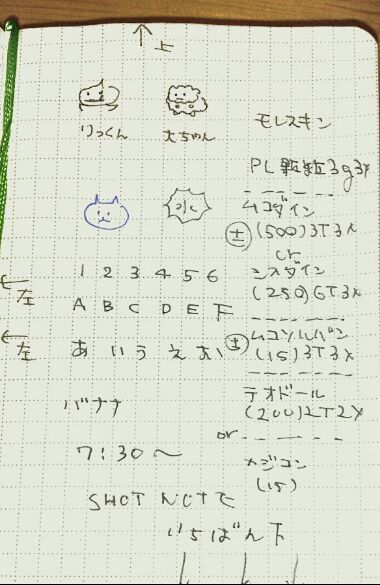 ↑上
りっくん 大ちゃん
水
←左
1 2 3 4 5 6
A B C D E F
←左
あ い う え お
バナナ
7:30〜
SHOT NOTE
いちばん下
モレスキン
PL顆粒3g3x
ムコダイン
±(500)3T3x
or
シスダイン
(250)6T3x
±ムコソルバン
(15)3T3x
テオドール
(200)2T2x
or
メジコン
(15)